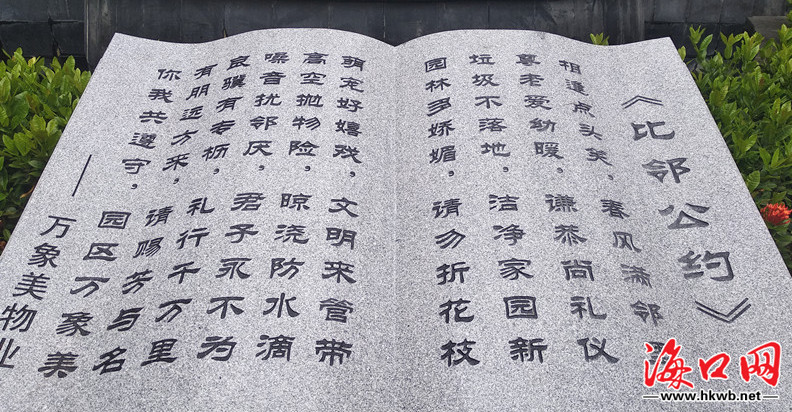 《比邻公约》
相逢点头笑，春风满邻
尊老爱幼暖，谦恭尚礼仪
垃圾不落地，洁净家园新
园林多娇媚，请勿折花枝
萌宠好嬉戏，文明来管带
高空抛物险，晾浇防水滴
噪音扰邻厌，君子永不为
良骥有专枥，礼行千万里
有朋远方来，请赐芳与名
你我共遵守，园区万象美
——万象美物业
海口网
www.hkwb.net